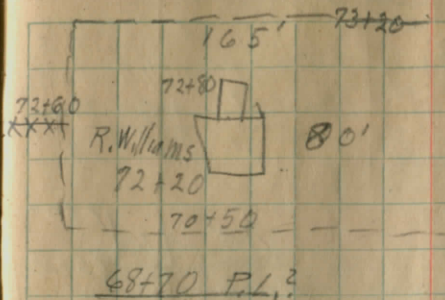 73+20
165'
72+80
72+60
R. Williams
80'
72+20
70+50
68+70 P.L.²